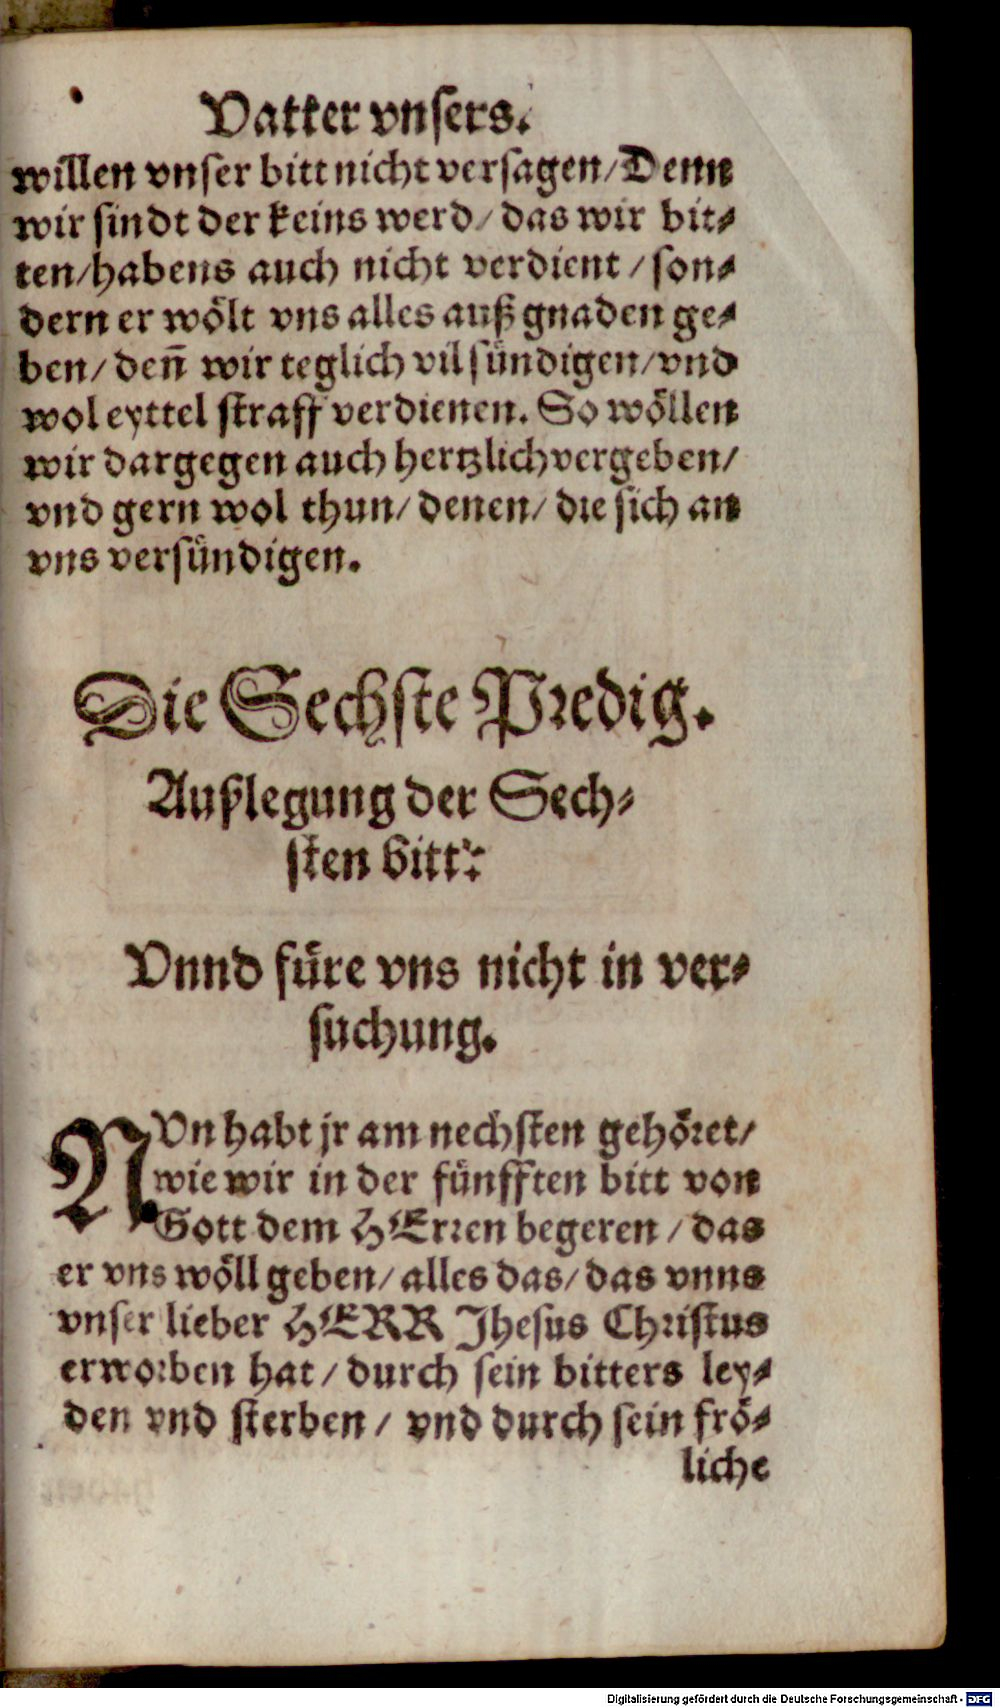 Vatter vnsers.
willen vnser bitt nicht versagen/Denn
wir sindt der keins werd/das wir bit⸗
ten/habens auch nicht verdient/son⸗
dern er wölt vns alles auß gnaden ge⸗
ben/deñ wir teglich vil sündigen/vnd
wol eyttel straff verdienen. So wöllen
wir dargegen auch hertzlich vergeben/
vnd gern wol thun/denen/die sich an
vns versündigen.
Die Sechste Predig.
Außlegung der Sech⸗
sten bitt:
Vnnd füre vns nicht in ver⸗
suchung.
NVn habt jr am nechsten gehöret/
wie wir in der fünfften bitt von
Gott dem HErren begeren/das
er vns wöll geben/alles das/das vnns
vnser lieber HERR Jhesus Christus
erworben hat/durch sein bitters ley⸗
den vnd sterben/vnd durch sein frö⸗
liche
Digitalisierung gefördert durch die Deutsche Forschungsgemeinschaft - DFG